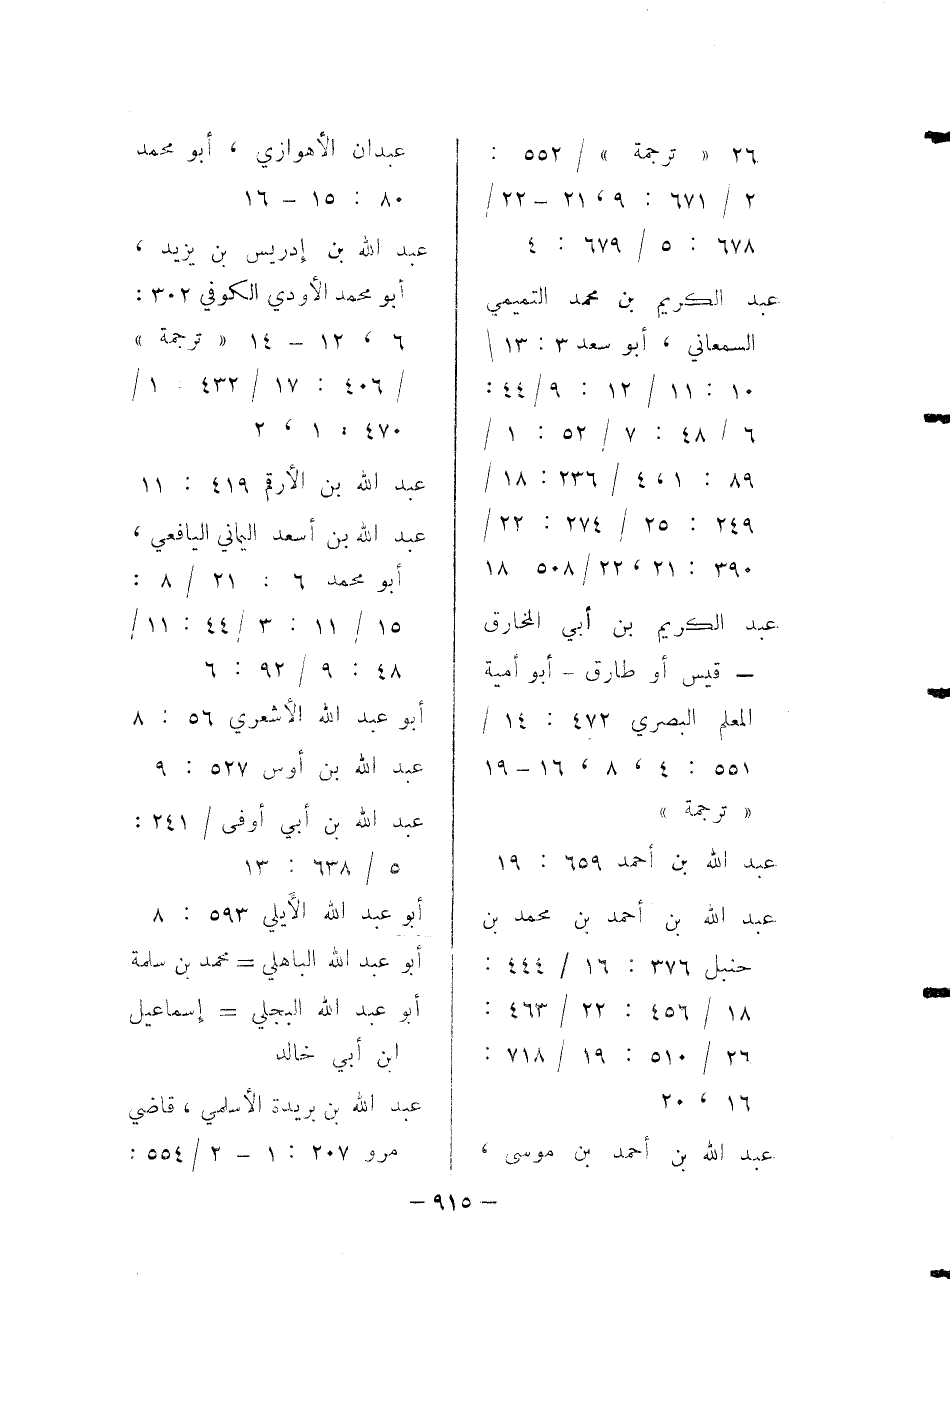 ٢٦ « ترجمة » / ٥٥٢ :
٢ / ٦٧١ : ٩ ، ٢١ – ٢٢ /
٦٧٨ : ٥ / ٦٧٩ : ٤
عبد الكريم بن محمد التميمي
السمعاني ، أبو سعد ٣ : ١٣ \
١٠ : ١١ / ١٢ : ٩ / ٤٤ :
٦ / ٤٨ : ٧ / ٥٢ : ١ /
٨٩ : ١ ، ٤ / ٢٣٦ : ١٨ /
٢٤٩ : ٢٥ / ٢٧٤ : ٢٢ /
٣٩٠ : ٢١ ، ٢٢ / ٥٠٨ ١٨
عبد الكريم بن أبي المخارق
– قيس أو طارق – أبو أمية
المعلم البصري ٤٧٢ : ١٤ /
٥٥١ : ٤ ، ٨ ، ١٦ – ١٩
« ترجمة »
عبد الله بن أحمد ٦٥٩ : ١٩
عبد الله بن أحمد بن محمد بن
حنبل ٣٧٦ : ١٦ / ٤٤٤ :
١٨ / ٤٥٦ : ٢٢ / ٤٦٣ :
٢٦ / ٥١٠ : ١٩ / ٧١٨ :
١٦ ، ٢٠
عبد الله بن أحمد بن موسى ،
عبدان الأهوازي ، أبو محمد
٨٠ : ١٥ – ١٦
عبد الله بن إدريس بن يزيد ،
أبو محمد الأودي الكوفي ٣٠٢ :
٦ ، ١٢ – ١٤ « ترجمة »
/ ٤٠٦ : ١٧ / ٤٣٢ ١ /
٤٧٠ : ١ ، ٢
عبد الله بن الأرقم ٤١٩ : ١١
عبد الله بن أسعد اليماني اليافعي ،
أبو محمد ٦ : ٢١ / ٨ :
١٥ / ١١ : ٣ / ٤٤ : ١١ /
٤٨ : ٩ / ٩٢ : ٦
أبو عبد الله الأشعري ٥٦ : ٨
عبد الله بن أوس ٥٢٧ : ٩
عبد الله بن أبي أوفى / ٢٤١ :
٥ / ٦٣٨ : ١٣
أبو عبد الله الأيلي ٥٩٣ : ٨
أبو عبد الله الباهلي = محمد بن سلمة
أبو عبد الله البجلي = إسماعيل
ابن أبي خالد
عبد الله بن بريدة الأسلمي ، قاضي
مرو ٢٠٧ : ١ – ٢ / ٥٥٤ :
– ٩١٥ –